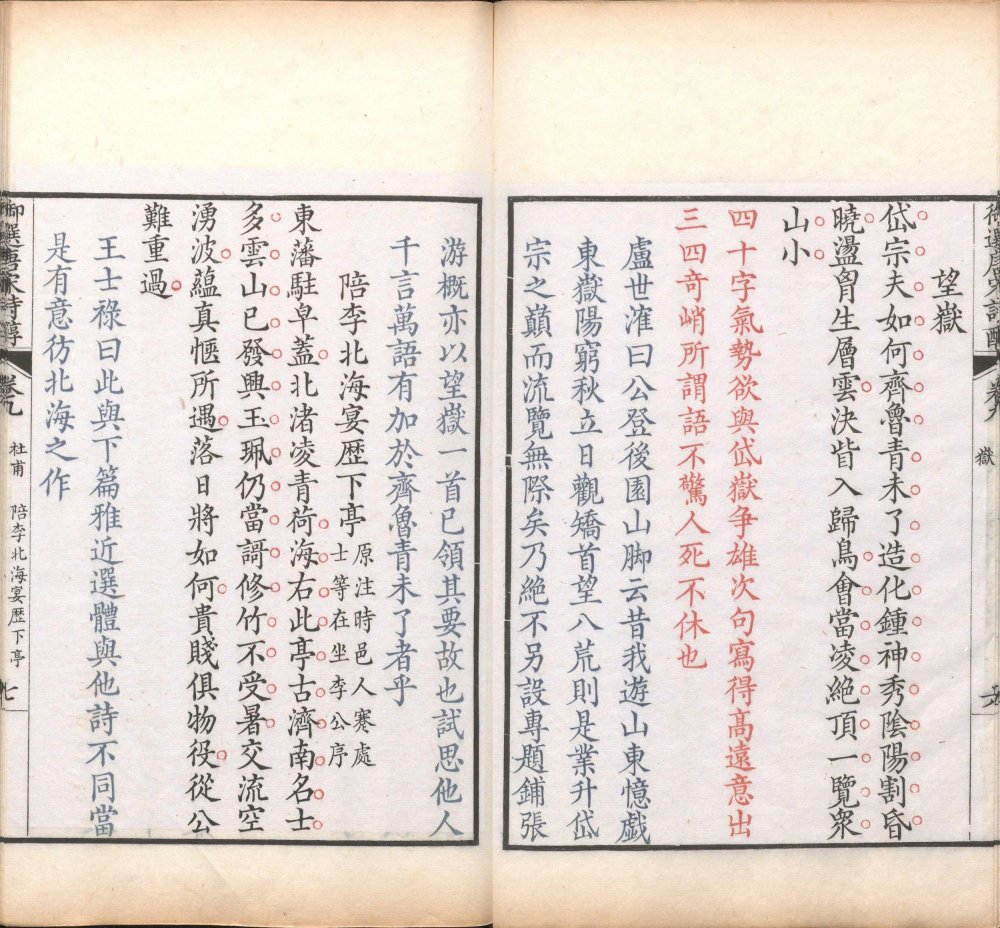 望嶽
岱宗夫如何齊魯青未了造化鍾神秀陰陽割昏
曉盪胷生層雲決眥入歸鳥會當凌絶頂一覽衆
山小
四十字氣勢欲與岱嶽争雄次句寫得高遠意出
三四奇峭所謂語不驚人死不休也
盧世㴶曰公登後園山脚云昔我遊山東憶戲
東嶽陽窮秋立日觀矯首望八荒則是業升岱
宗之巔而流覽無際矣乃絶不另設專題鋪張
游概亦以望嶽一首已領其要故也試思他人
千言萬語有加於齊魯青未了者乎
陪李北海宴歴下亭
原注時邑人蹇處
士等在坐李公序
東藩駐皁蓋北渚凌青荷海右此亭古濟南名士
多雲山已發興玉珮仍當謌修竹不受暑交流空
湧波藴真愜所遇落日將如何貴賤俱物役從公
難重過
王士禄曰此與下篇雅近選體與他詩不同當
是有意彷北海之作
御選唐宋詩醇
卷九
杜甫 陪李北海宴歴下亭
七